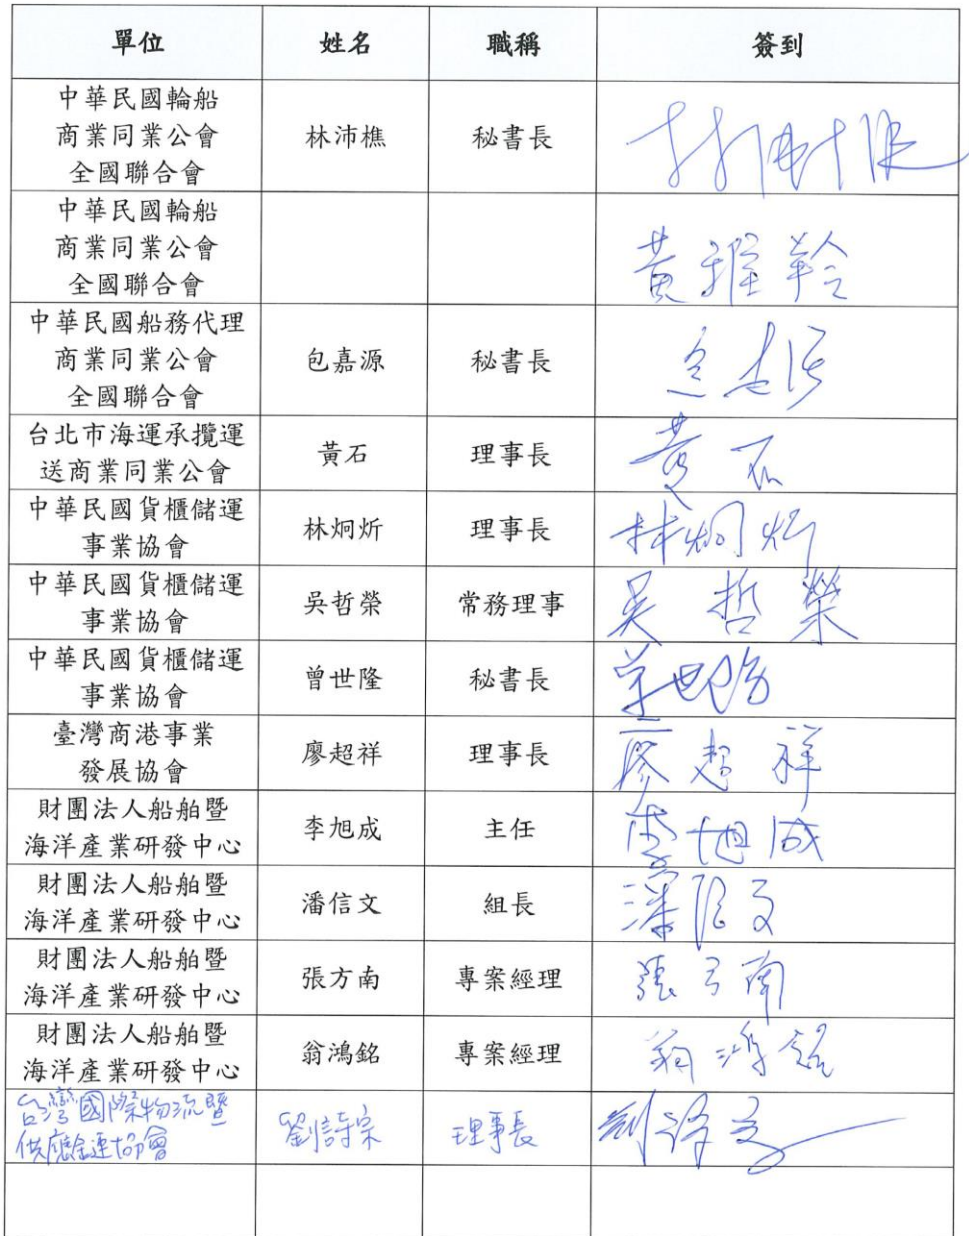 單位 姓名 職稱 簽到
中華民國輪船
商業同業公會
全國聯合會
林沛樵 秘書長 林沛樵
中華民國輪船
商業同業公會
全國聯合會
黃雅羚
中華民國船務代理
商業同業公會
全國聯合會
包嘉源 秘書長
台北市海運承攬運
送商業同業公會
黃石 理事長 黃石
中華民國貨櫃儲運
事業協會
林炯炘 理事長 林炯炘
中華民國貨櫃儲運
事業協會
吳哲榮 常務理事 吳哲榮
中華民國貨櫃儲運
事業協會
曾世隆 秘書長 曾世隆
臺灣商港事業
發展協會
廖超祥 理事長 廖超祥
財團法人船舶暨
海洋產業研發中心
李旭成 主任 李旭成
財團法人船舶暨
海洋產業研發中心
潘信文 組長 潘信文
財團法人船舶暨
海洋產業研發中心
張方南 專案經理 張方南
財團法人船舶暨
海洋產業研發中心
翁鴻銘 專案經理 翁鴻銘
台灣國際物流暨
供應鏈協會
劉詩宗 理事長 劉詩宗